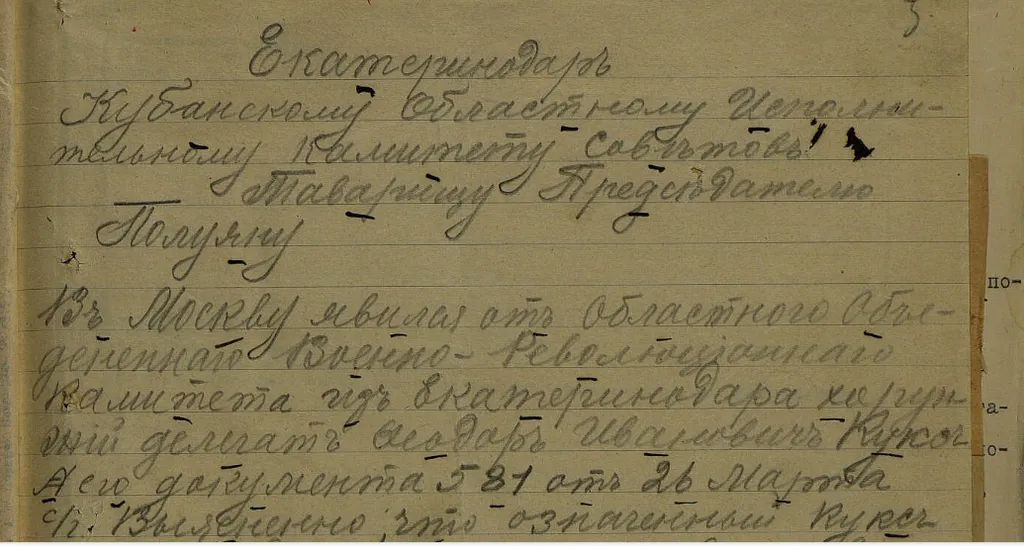 3
Екатеринодаръ
Кубанскому Областному Исполни-
тельному Камитету Совѣтовъ!
Таварищу Предсѣдателю
Полуяну
Въ Москву явился отъ Областного Объе-
дененнаго Военно-Революціоннаго
Камитета изъ Екатеринодара хорун-
жій делегатъ Ѳеодоръ Ивановичъ Куксъ
его документа 581 отъ 26 Марта
с/г. Выясненно, что означенный Куксъ
по-
та-
по-